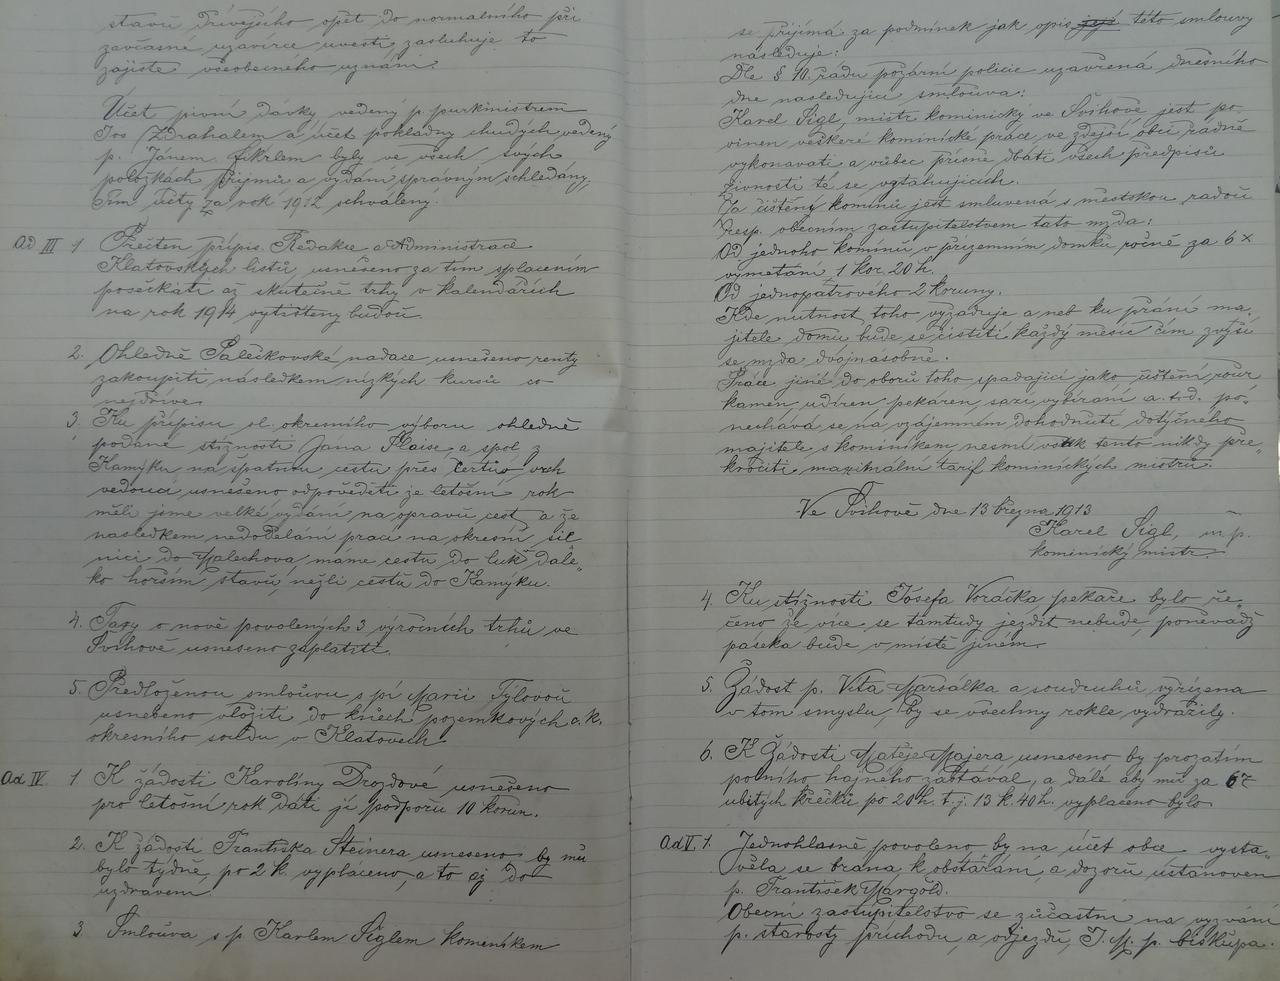 stavu dřívějšího opět do normalního při
zavčasné uzavírce uvésti zasluhuje to
zajisté všeobecného uznání.
Účet pivní dávky vedený p. purkmistrem
Jos. Zdrahalem a účet pokladny chudých vedený
p. Jánem Fikrlem byly ve všech svých
položkách příjmů a vydání správným schledány,
čím účty za rok 1912 schváleny.
Ad III 1. Přečten přípis Redakce a Administrace
Klatovských listů, usnešeno za tím splacením
posečkati až skutečně trhy v kalendářích
na rok 1914 vytištěny budou.
2. Ohledně Palečkovské nadace usnešeno renty
zakoupiti následkem nízkých kursů co
nejdříve
3. Ku přípisu sl. okresního výboru ohledně
podané stížnosti Jána Plaise, a spol. z
Kamýku na špatnou cestu přes Čertův vrch
vedoucí usnešeno odpověděti že letošní rok
měli jsme velké vydání na opravu cest a že
nasledkem nedodělání prací na okresní sil
nici do Malechova máme cestu do luk dale„
ko horším stavu, nežli cestu do Kamýku.
4. Taxy o nově povolených 3 výročních trhů ve
Švihově usnešeno zaplatiti.
5. Předloženou smlouvu s pí Marií Týlovou
usnešeno vložiti do kněch pozemkových c. k.
okresního soudu v Klatovech
Ad IV. 1. K žádosti Karolíny Drozdové usnešeno
pro letošní rok dáti jí podporu 10 korun.
2. K žádosti Františka Steinera usneseno by mu
bylo týdně, po 2 k. vypláceno, a to až do
uzdravení
3. Smlouva s p Karlem Síglem komeníkem
se přijímá za podmínek jak opis její této smlouvy
následuje:
Dle § 10. řádu požární policie uzavřená dnešního
dne následující smlouva:
Karel Sígl, mistr kominický ve Švihově jest po„
vinen veškeré kominické práce ve zdejší obci řádně
vykonavati a vůbec přísně dbáti všech předpisů
živnosti té se vztahujících.
Za čištěný komínů jest smluvená s městskou radou
resp. obecním zastupitelstvem tato mzda:
Od jednoho komínu v přízemním domku ročně za 6 x
vymetání 1 kor. 20 h.
Od jednopatrového 2 koruny.
Kde nutnost toho vyžaduje a neb ku přání ma„
jitele domu bude se čistiti každý měsíc čím zvýší
se mzda dvojnásobně.
Práce jiné do oboru toho spadající jako čištění rour
kamen, udíren pekáren, sazí vybírání a. t. d. po„
nechává se na vzájemním dohodnutí dotyčného
majitele s kominíkem, nesmí však tento nikdy pře„
kročiti maximální tarif kominických mistrů.
Ve Švihově dne 13 března 1913
Karel Sígl, m. p.
kominický mistr.
4. Ku stížnosti Josefa Voráčka pekaře bylo ře„
čeno že více se támtudy jezdit nebude, poněvadž
paseka bude v místě jiném.
5. Žádost p. Víta Maršálka a soudruhů vyřízena
v tom smyslu, by se všechny rokle vydražily.
6. K žádosti Matěje Majera usneseno by prozatím
polního hajného zastával, a dále aby mu za 67
ubitých křečků po 20 h. t. j. 13 k. 40 h. vyplaceno bylo
Ad V. 1. Jednohlasně povoleno by na účet obce vysta„
věla se brána, k obstarání, a dozoru ustanoven
p. František Margold.
Obecní zastupitelstvo se zúčastní na vyzvání
p. starosty příchodu, a odjezdu, J. M. p. biskupa.